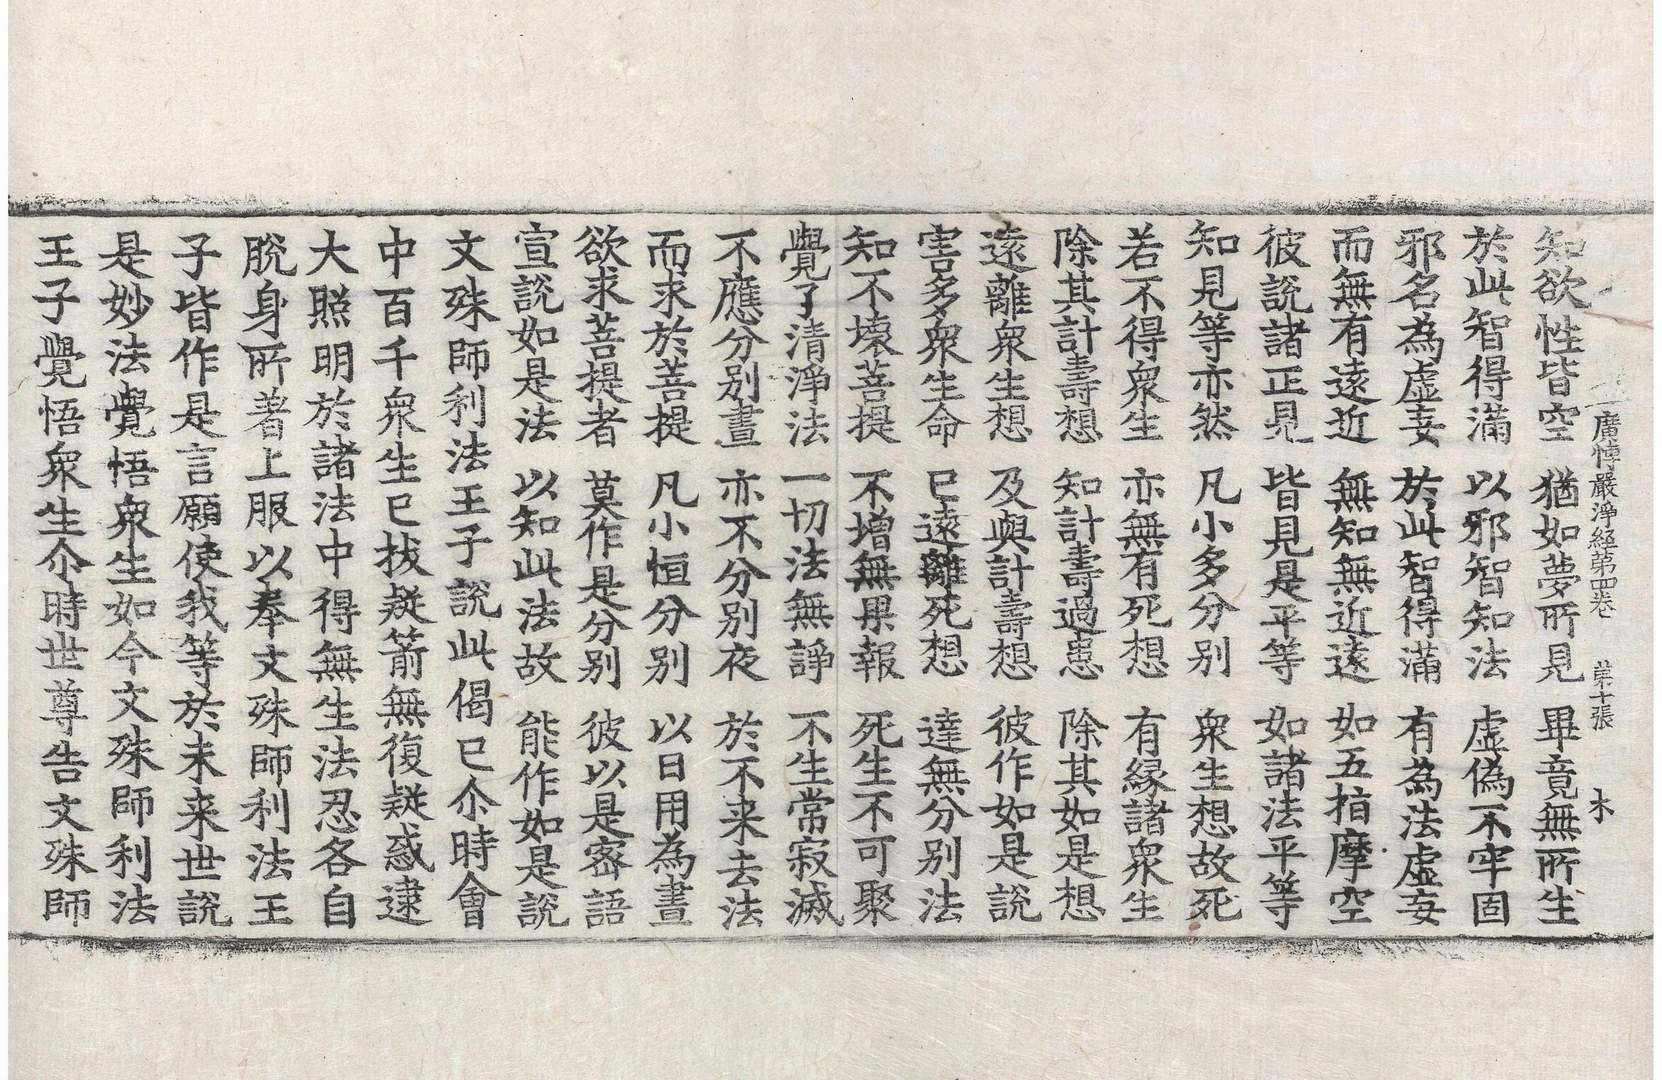 廣博嚴淨經第四卷 第十張 木
知欲性皆空 猶如夢所見 畢竟無所生
於此智得滿 以邪智知法 虛偽不牢固
邪名為虛妄 於此智得滿 有為法虛妄
而無有遠近 無知無近遠 如五指摩空
彼說諸正見 皆見是平等 如諸法平等
知見等亦然 凡小多分別 衆生想故死
若不得衆生 亦無有死想 有緣諸衆生
除其計壽想 知計壽過患 除其如是想
遠離衆生想 及與計壽想 彼作如是說
害多衆生命 已遠離死想 達無分別法
知不壞菩提 不增無果報 死生不可聚
覺了清淨法 一切法無諍 不生常寂滅
不應分別晝 亦不分別夜 於不来去法
而求於菩提 凡小恒分別 以日用為晝
欲求菩提者 莫作是分別 彼以是密語
宣說如是法 以知此法故 能作如是說
文殊師利法王子說此偈已尒時會
中百千衆生已拔疑箭無復疑惑逮
大照明於諸法中得無生法忍各自
脫身所著上服以奉文殊師利法王
子皆作是言願使我等於未来世說
是妙法覺悟衆生如今文殊師利法
王子覺悟衆生尒時世尊告文殊師